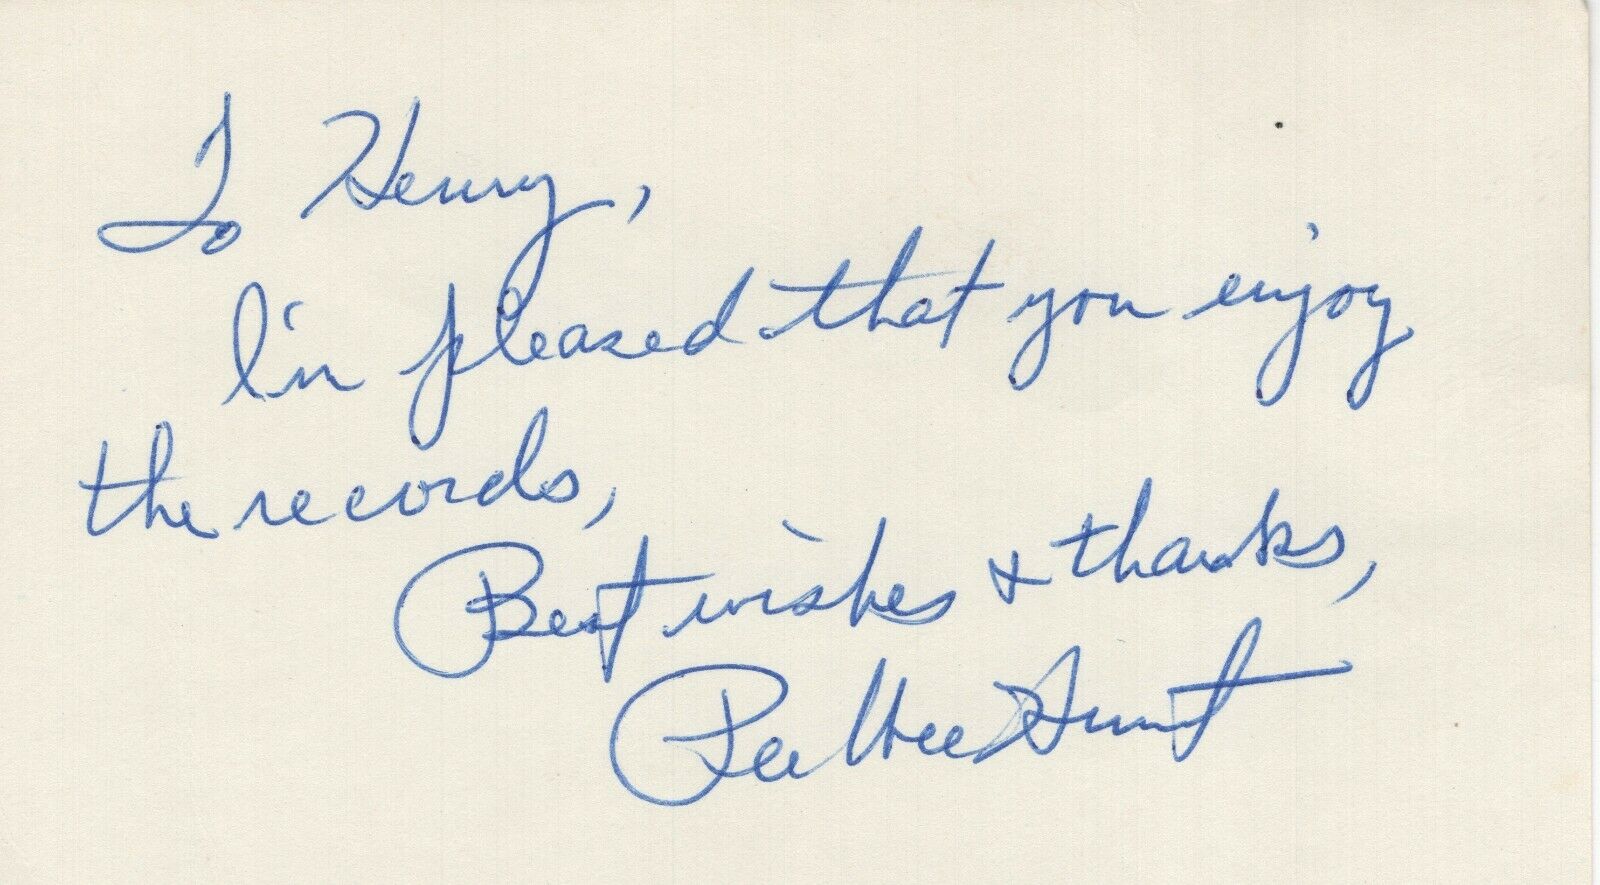 To Henry,
I'm pleased that you enjoy
the records,
Best wishes & thanks,
Pee Wee Hunt